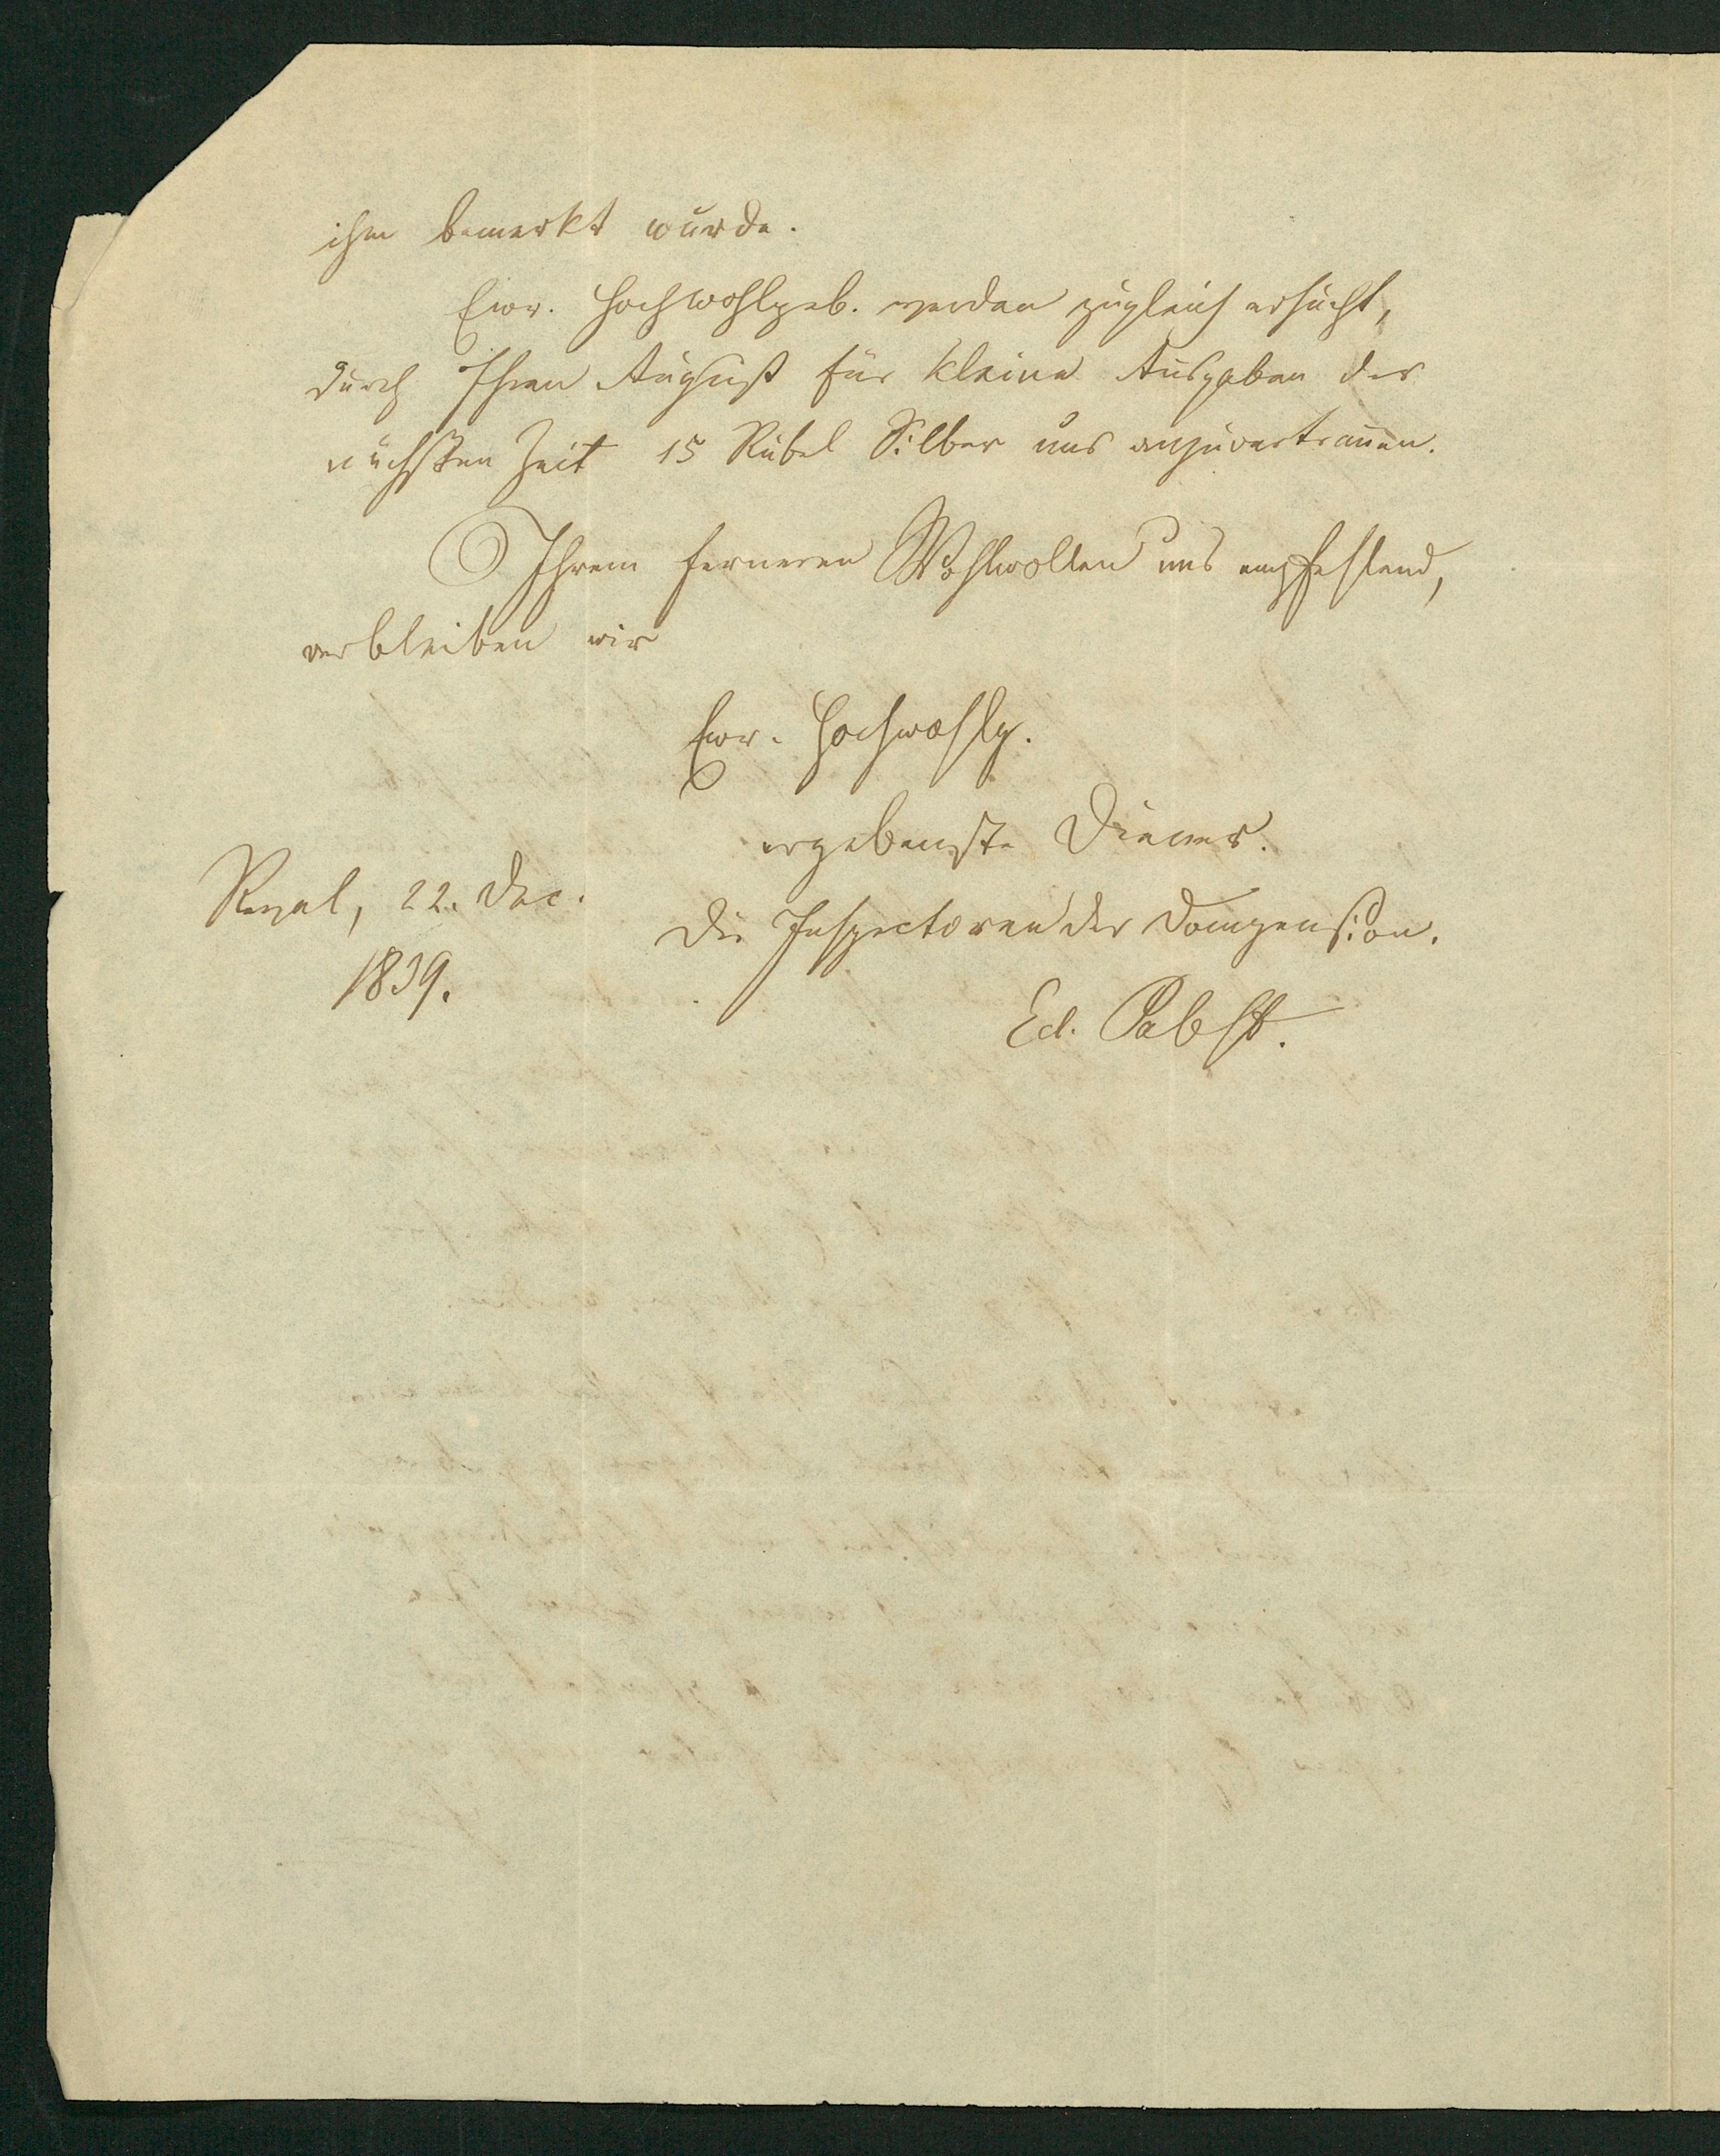 ihm bemerkt wurde.
Ewr. Hochwohlgeb. werden zugleich ersucht,
durch Ihren August für kleine Ausgaben der
nächsten Zeit 15 Rubel Silber uns anzuvertrauen.
Ihrem ferneren Wohlwollen uns empfehlend,
verbleiben wir
Ewr. Hochwohlg.
ergebenste Diener.
Reval, 22. Dec.
1839.
Die Inspectoren der Dompension.
Ed. Pabst.